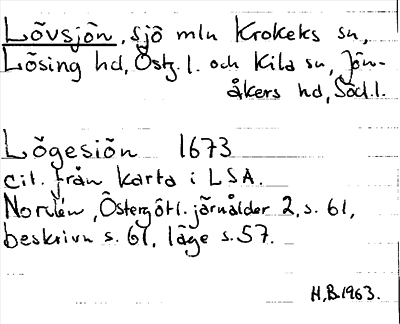 Lövsjön, sjö mln Krokeks sn,
Lösing hd, Östg.l. och Kila sn, Jön-
åkers hd, Söd.l.
Lögesiön 1673
cit. från karta i LSA.
Nordén, Östergötl. järnålder 2, s. 61,
beskrivn s. 61, läge s. 57.
H.B. 1963.